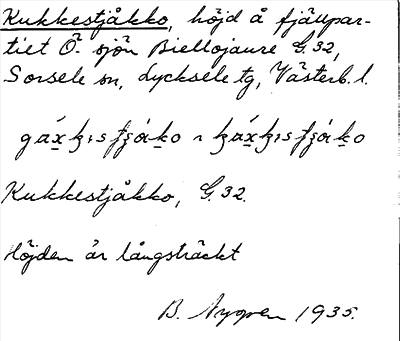 Kukkestjåkko, höjd å fjällpar-
tiet Ö. sjön Biellojaure G.32,
Sorsele sn, Lycksele tg, Västerb. l.
Kukkestjåkko, G.32.
Höjden är långsträckt
B. Nygren 1935.